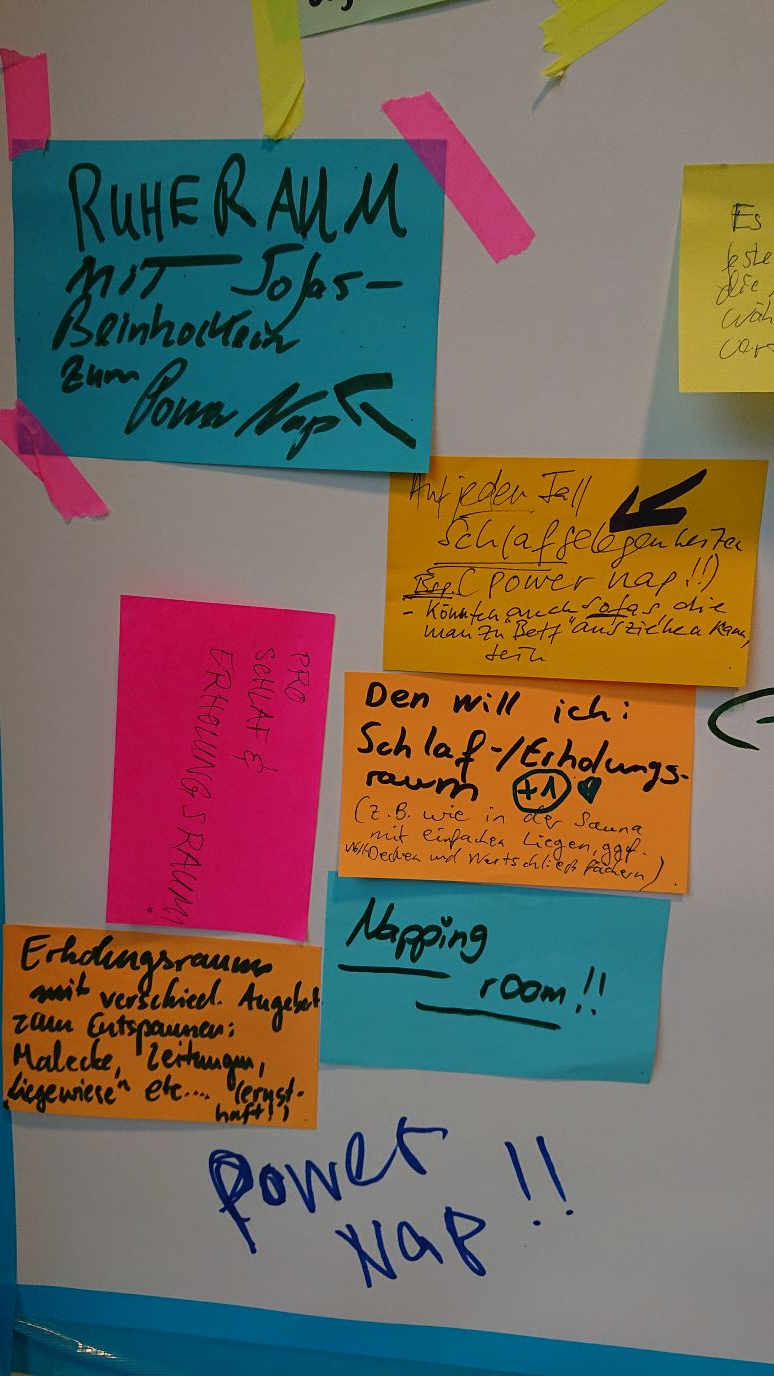 RUHERAUM
MIT Sofas-
Beinhockern
zum
Power Nap
Es
feste
die
wäh
Auf jeden Fall
Schlafgelegenheiten
Bsp. (power nap!!)
- Könnten auch sofas, die
man zu "Bett" ausziehen kann,
sein
PRO
SCHLAF &
ERHOLUNGSRAUM!
Den will ich:
Schlaf-/Erholungs-
raum +1 ♥
(z.B. wie in der Sauna
mit einfachen Liegen, ggf.
Decken und Wertschließfächern)
Napping
room!!
Erholungsraum
mit verschied. Angebot.
zum Entspannen:
Malecke, Zeitungen,
"Liegewiese" etc.... (ernst-
haft!)
Power
Nap!!